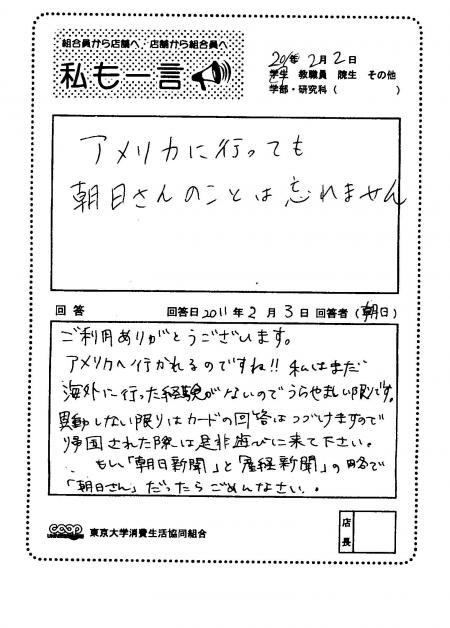 組合員から店舗へ・店舗から組合員へ
私も一言
2011年 2月 2日
学生 教職員 院生 その他
学部・研究科（ ）
アメリカに行っても
朝日さんのことは忘れません
回答 回答日 2011年 2月 3日 回答者（朝日）
ご利用ありがとうございます。
アメリカへ行かれるのですね!! 私はまだ
海外に行った経験がないのでうらやましい限りです。
異動しない限りはカードの回答はつづけますので
帰国された際は是非遊びに来て下さい。
もし「朝日新聞」と「産経新聞」の略で
「朝日さん」だったらごめんなさい。
coop 東京大学消費生活協同組合
店長